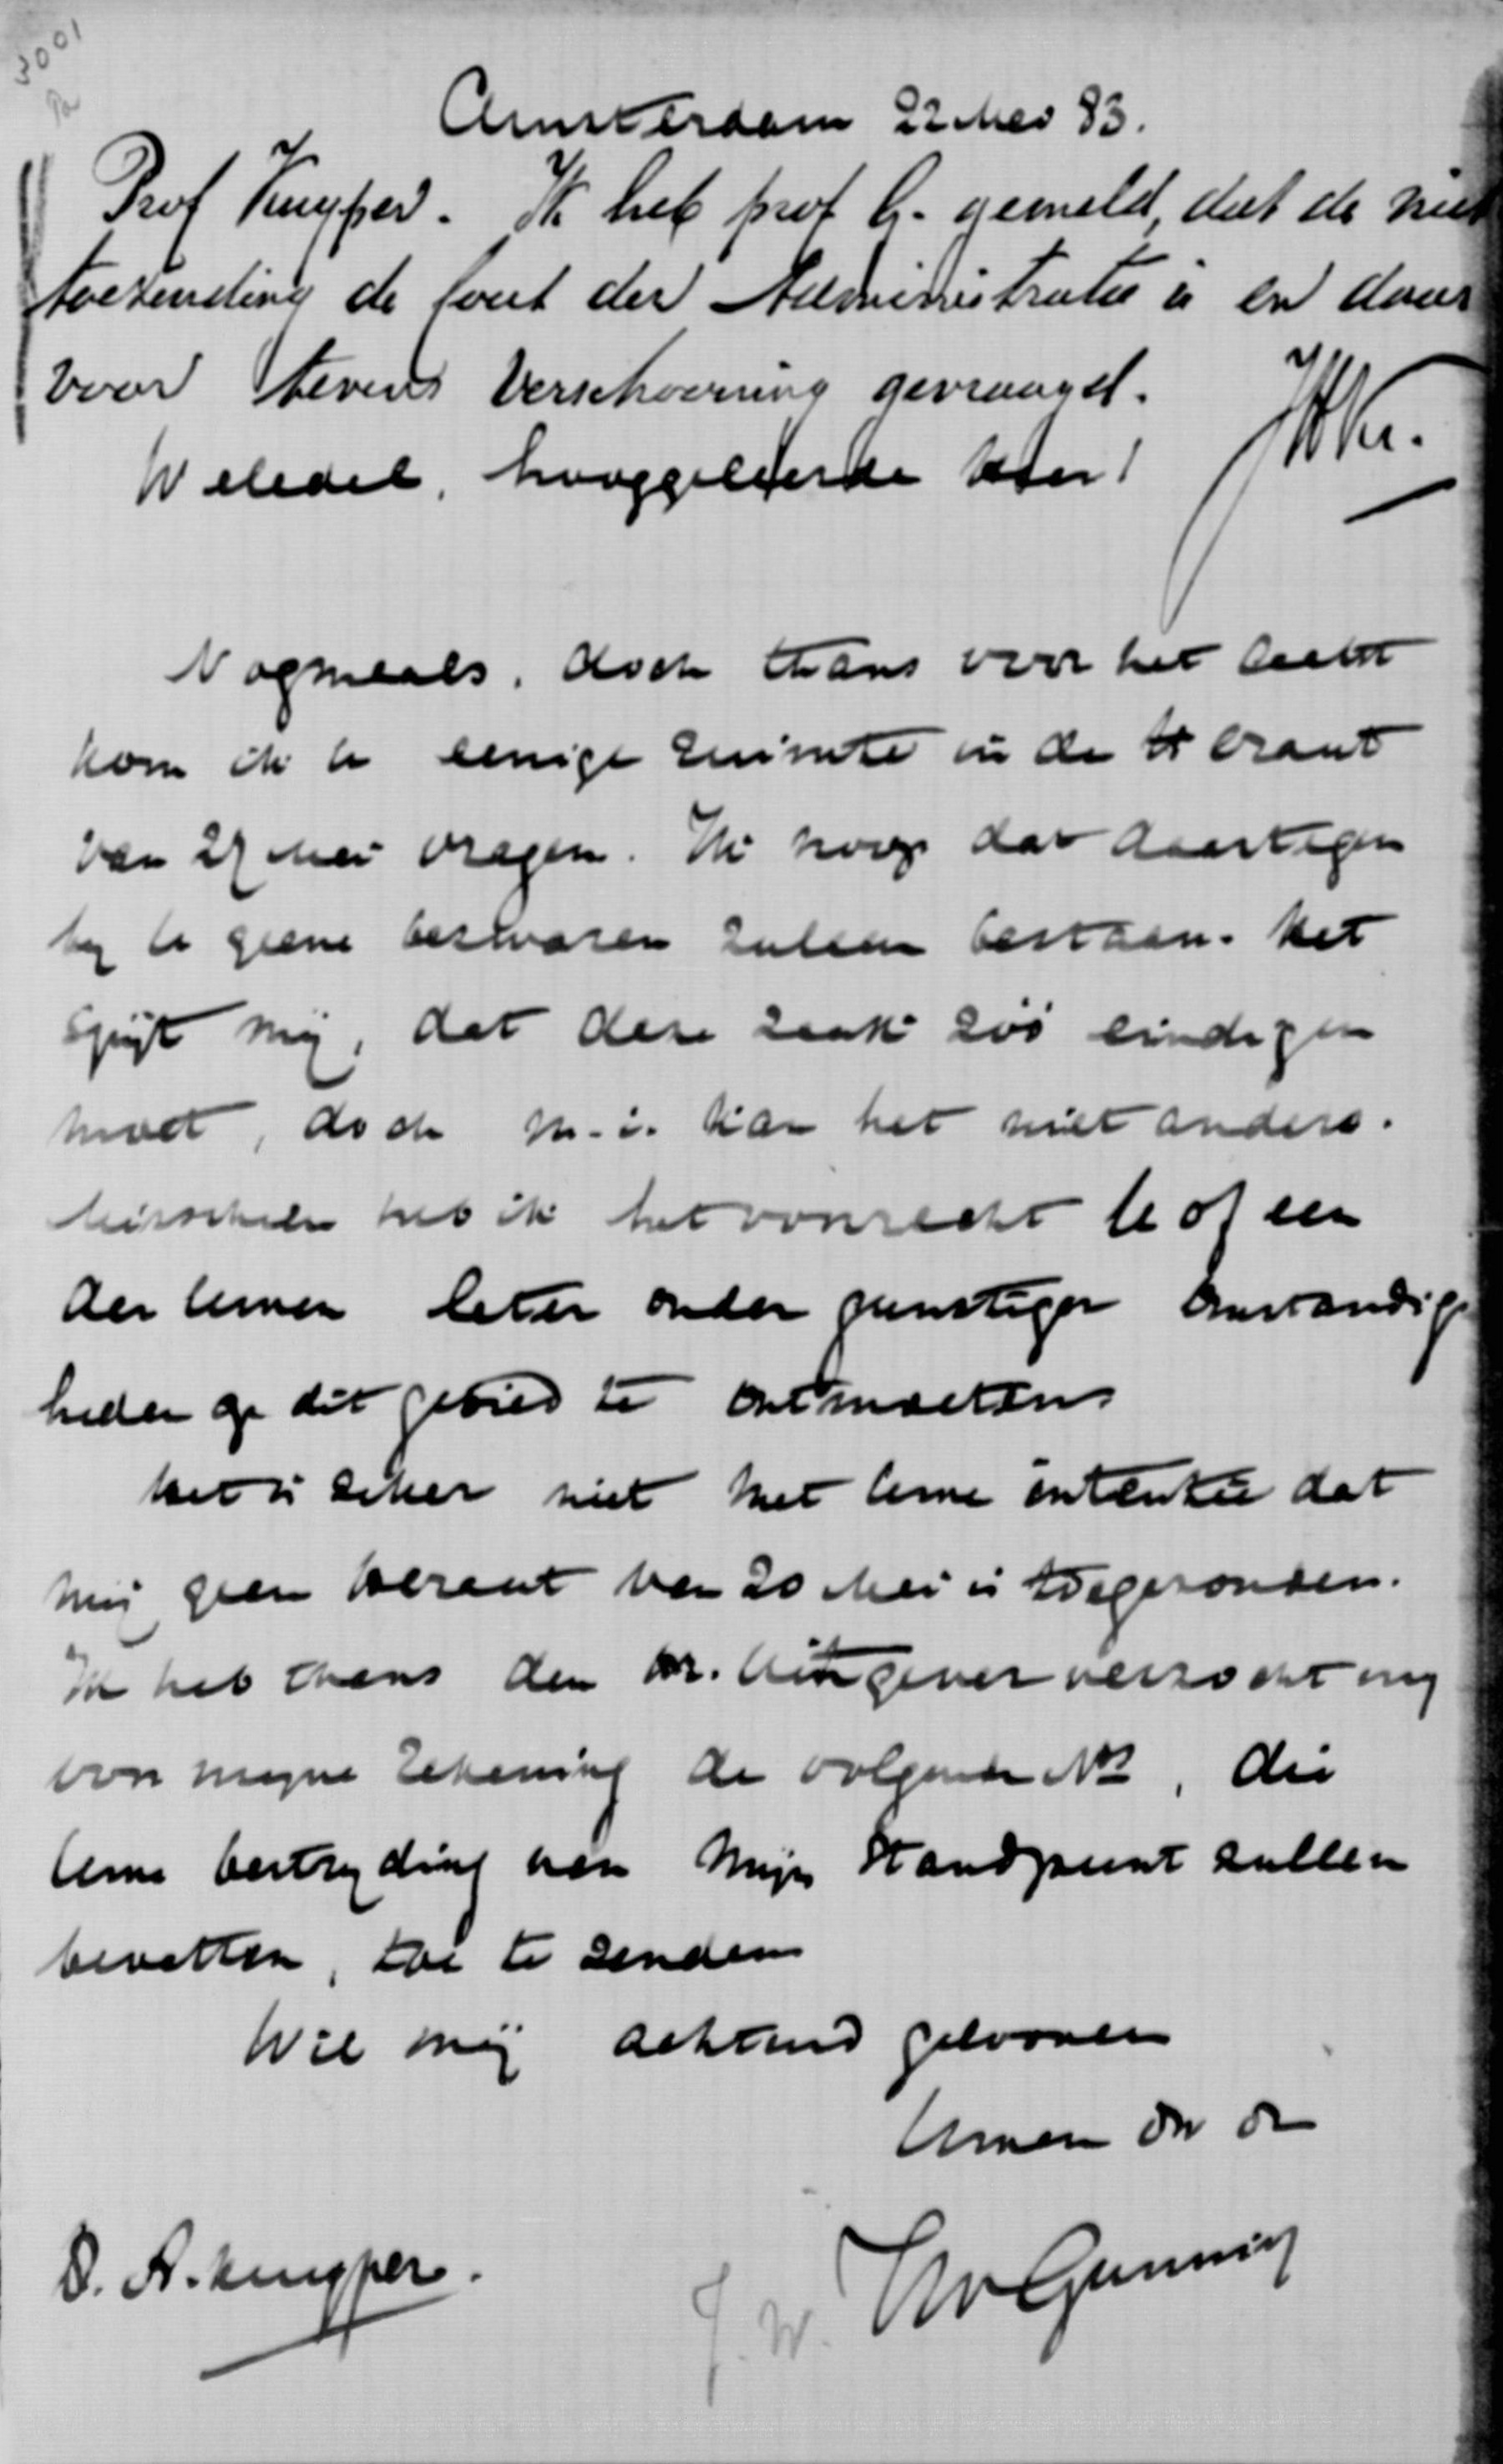 3001
Amsterdam 22 Mei 83.
Prof Kuyper. Ik heb prof G. gemeld, dat de niet
toezending de fout der Administratie is en daar
voor tevens verschooning gevraagd.
JHKr.
Weledel, hooggeleerde Heer!
Nogmaals, doch thans voor het laatst
kom ik U eenige ruimte in de Herant
van 27 Mei vragen. Ik hoop dat daartegen
by U geene bezwaren zullen bestaan. Het
spijt mij, dat deze zaak zóó eindigen
moet, doch m.i. kan het niet anders.
Misschien heb ik het voorrecht U of een
der Uwen later onder gunstiger omstandig
heden op dit gebied te ontmoeten
Het is zeker niet met Uwe intentie dat
mij geen Heraut van 20 Mei is toegezonden.
Ik heb thans den Hr. Uitgever verzocht mij
voor mijne rekening de volgende Nos, die
Uwe bestryding van mijn standpunt zullen
bevatten, toe te zenden
Wil mij achtend gelooven
Uwen
D. A. Kuyper.
J. W. Gunning